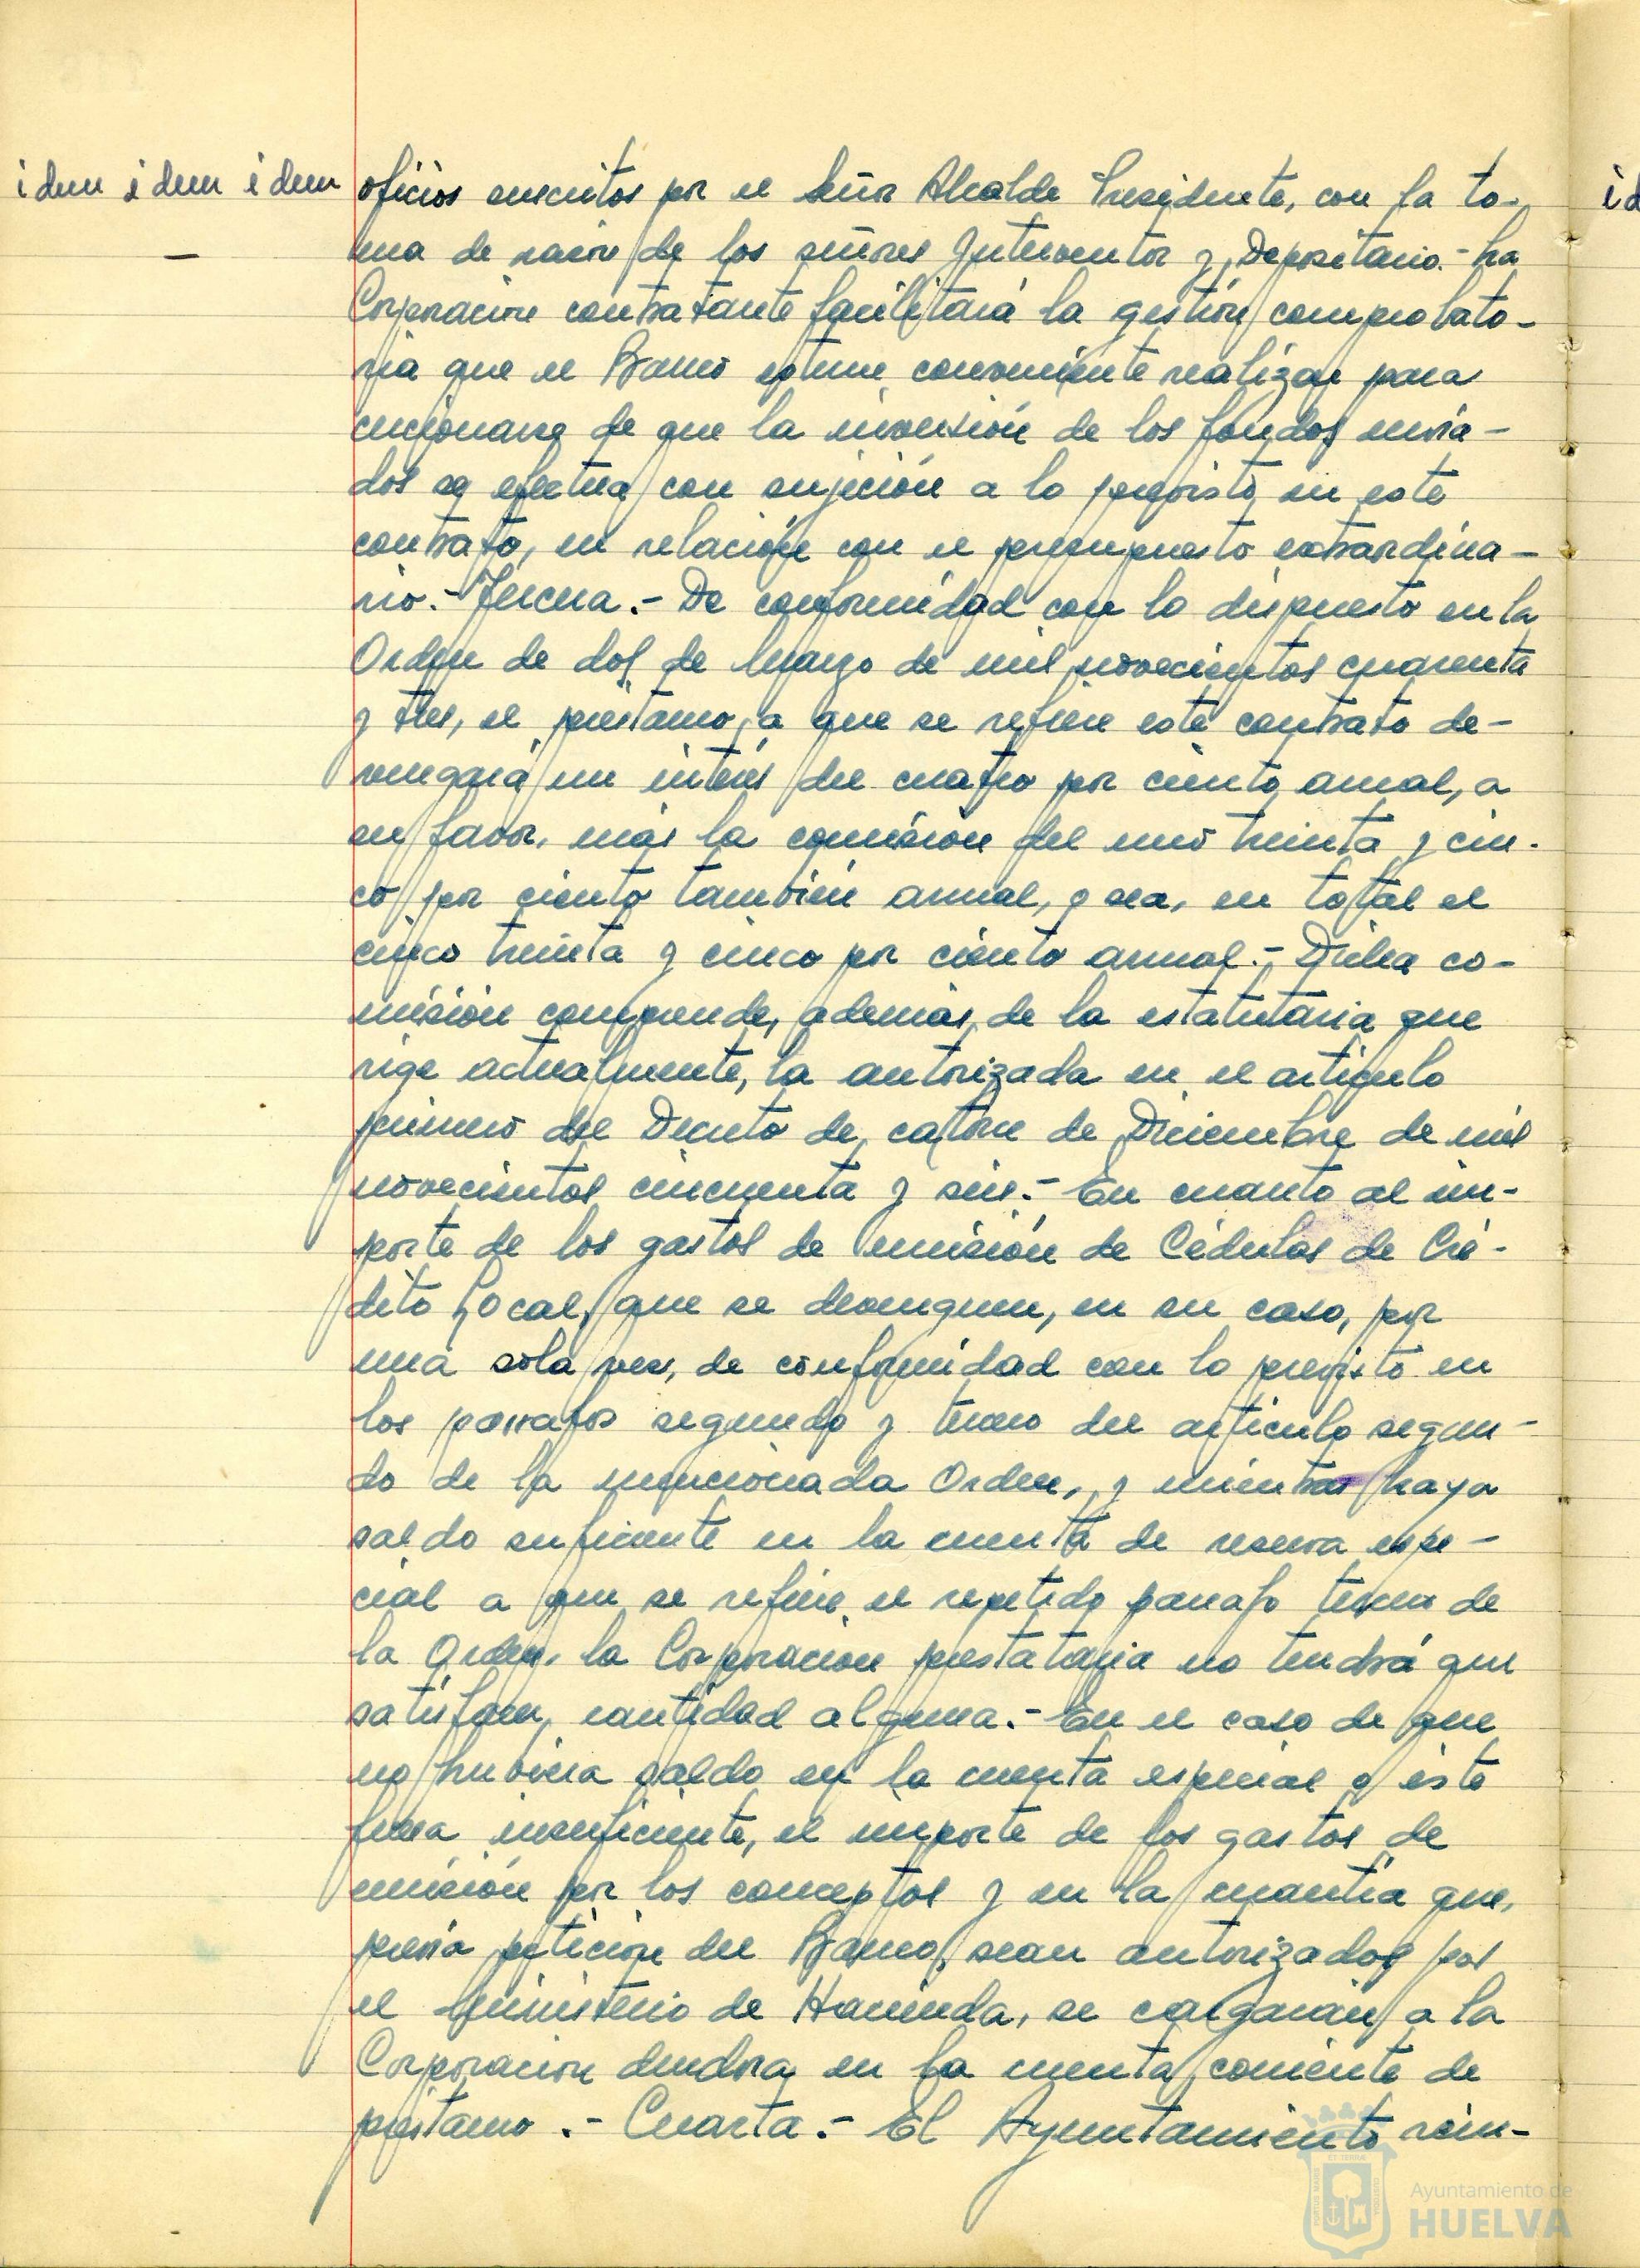 idem idem idem
oficios suscritos por el señor Alcalde Presidente, con la to-
ma de razón de los señores Interventor y Depositario.- La
Corporación contratante facilitará la gestión comprobato-
ria que el Banco estime conveniente realizar para
cerciorarse de que la inversión de los fondos envia-
dos se efectua con sujeción a lo previsto en este
contrato, en relación con el presupuesto extraordina-
rio.- Tercera.- De conformidad con lo dispuesto en la
Orden de dos de Marzo de mil novecientos cuarenta
y tres, el préstamo a que se refiere este contrato de-
vengará un interés del cuatro por ciento anual, a
su favor, más la comisión del uno treinta y cin-
co por ciento también anual, o sea, en total el
cinco treinta y cinco por ciento anual.- Dicha co-
misión comprende, además de la estatutaria que
rige actualmente, la autorizada en el artículo
primero del Decreto de catorce de Diciembre de mil
novecientos cincuenta y seis.- En cuanto al im-
porte de los gastos de emisión de Cédulas de Cré-
dito Local, que se devenguen, en su caso, por
una sola vez, de conformidad con lo previsto en
los párrafos segundo y tercero del artículo segun-
do de la mencionada Orden, y mientras haya
saldo suficiente en la cuenta de reserva espe-
cial a que se refiere el repetido párrafo tercero de
la Orden, la Corporación prestataria no tendrá que
satisfacer cantidad alguna.- En el caso de que
no hubiera saldo en la cuenta especial o éste
fuera insuficiente, el importe de los gastos de
emisión por los conceptos y en la cuantía que,
previa petición del Banco, sean autorizados por
el Ministerio de Hacienda, se cargarán a la
Corporación deudora en la cuenta corriente de
préstamo.- Cuarta.- El Ayuntamiento reim-
Ayuntamiento de
HUELVA